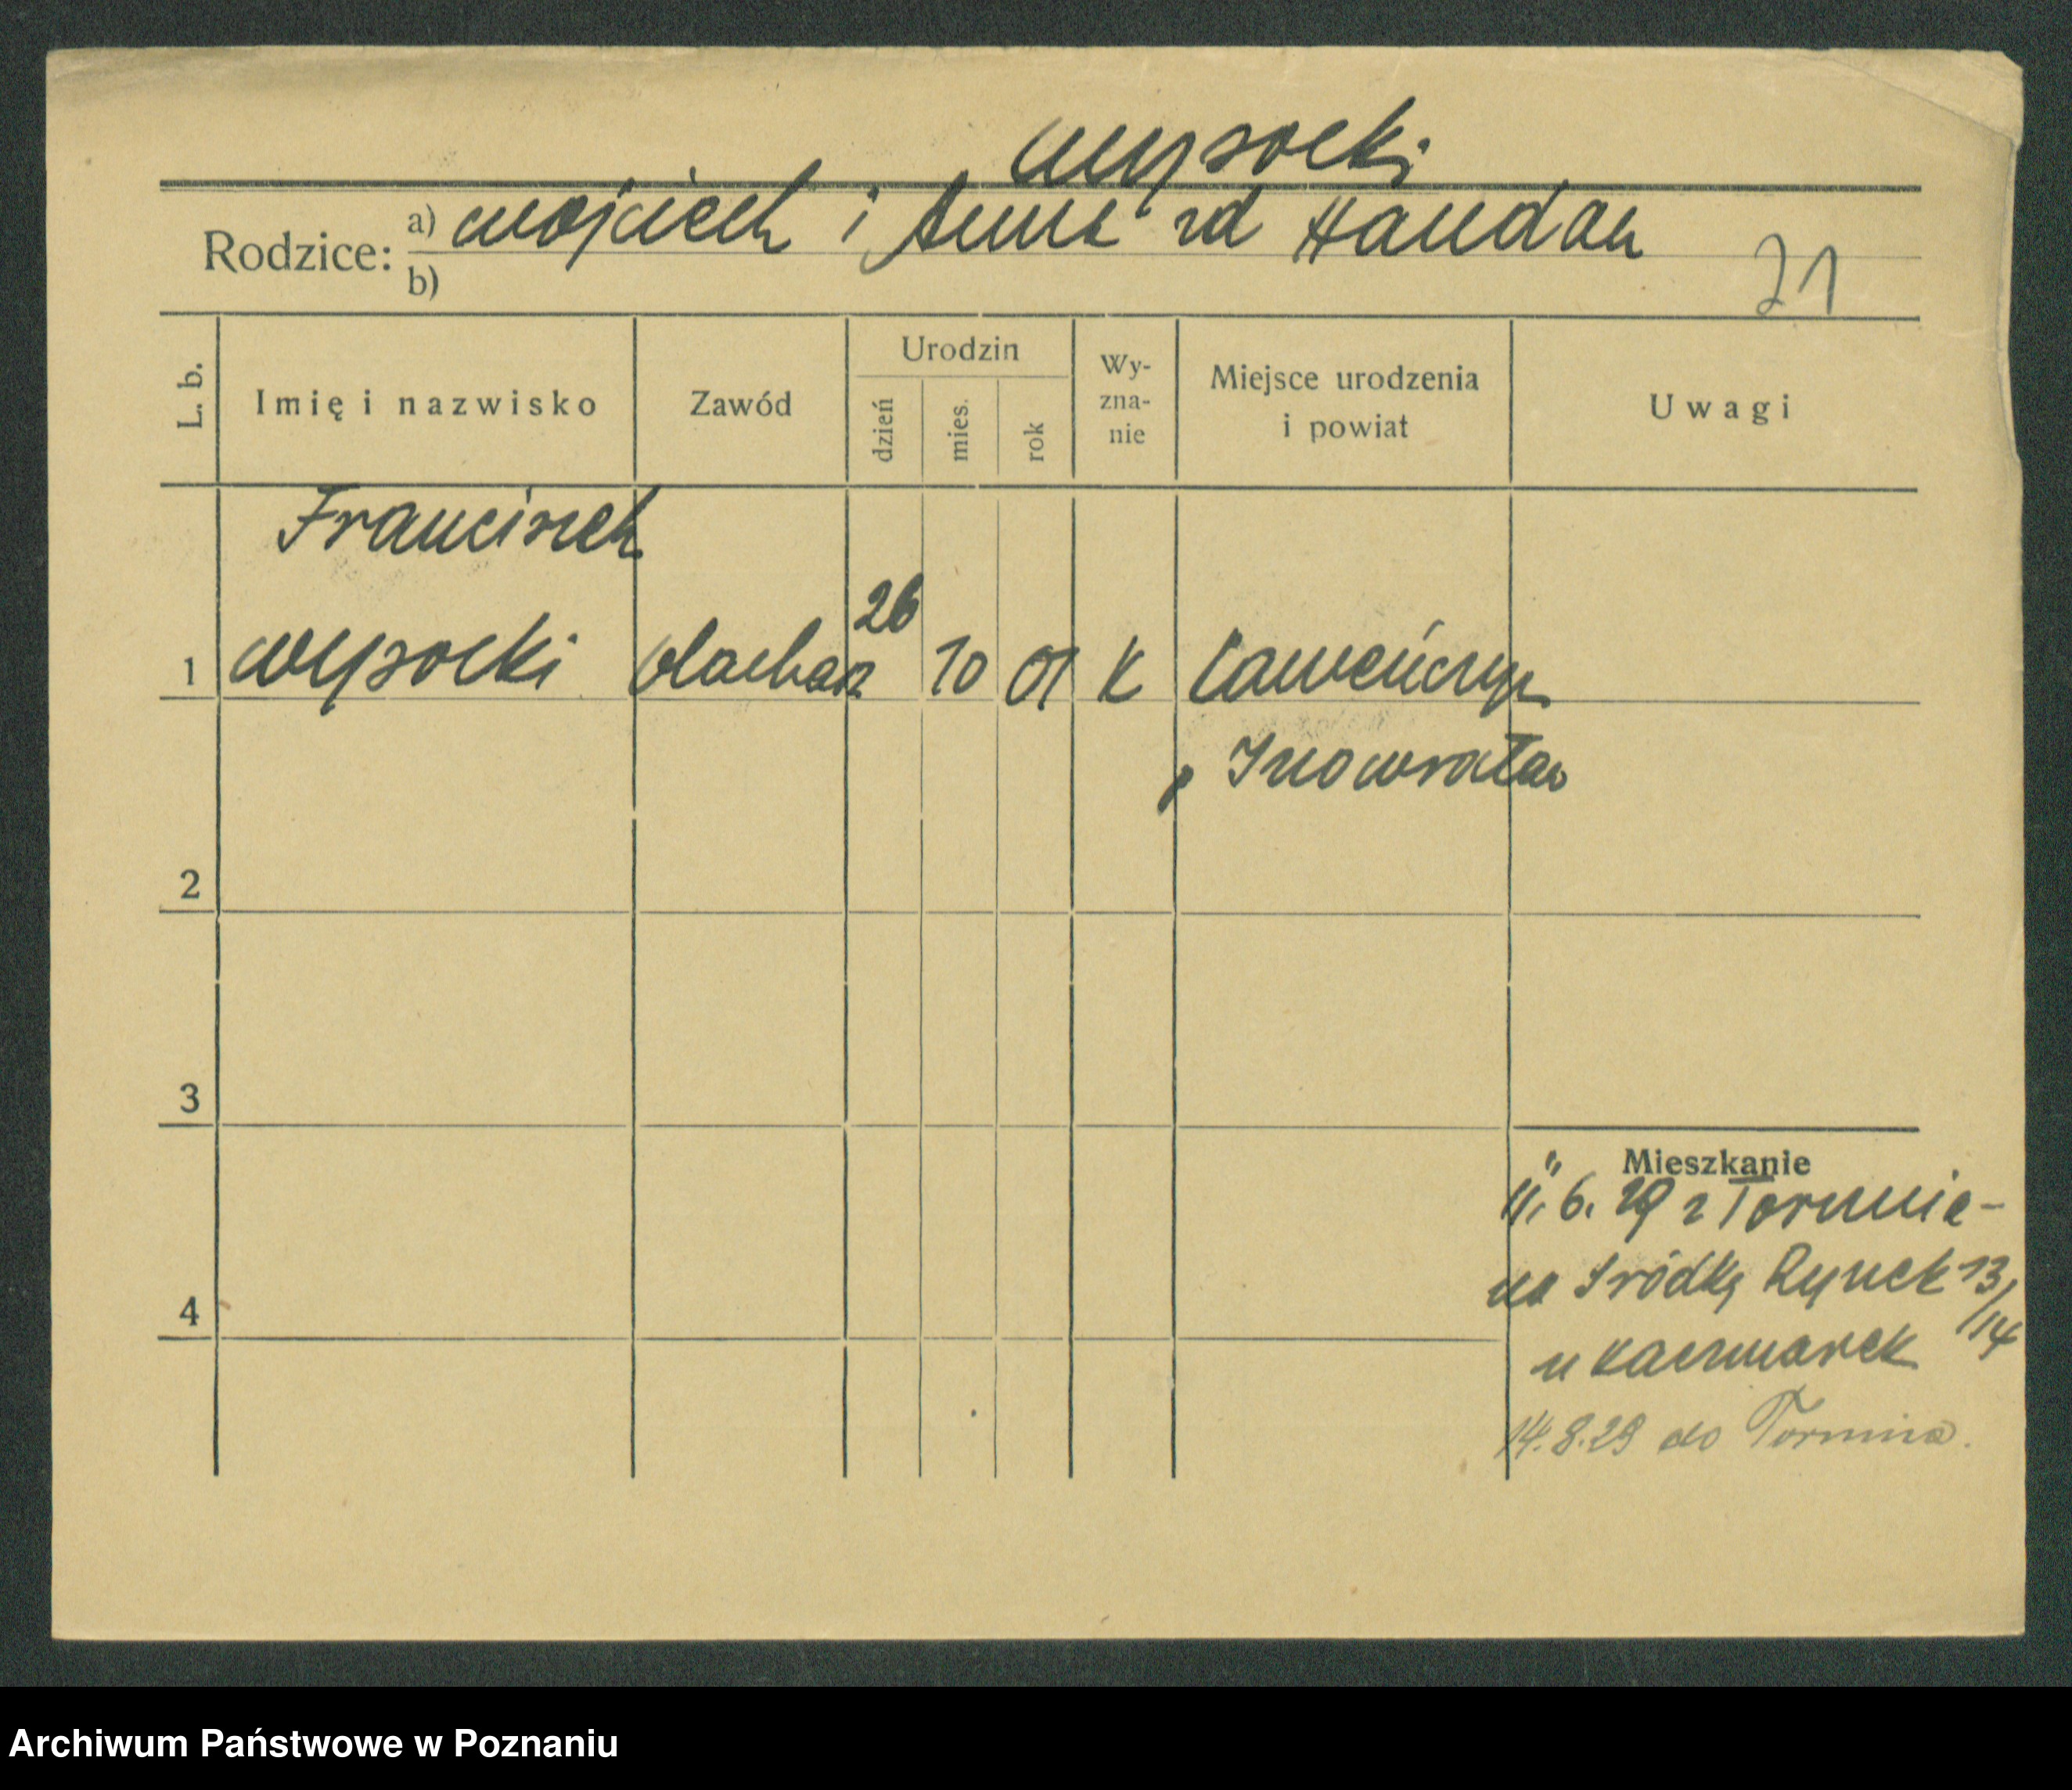 Wysocki
Rodzice: a) Wojciech i Anna zd Handak
b)
21
L. b.
Imię i nazwisko
Zawód
Urodzin
dzień
mies.
rok
Wy-
zna-
nie
Miejsce urodzenia
i powiat
Uwagi
Franciszek
1 Wysocki blacharz 26 10 01 K
p Inowrocław
2
3
4
Mieszkanie
11. 6. 29 z Torunia -
na Śródkę Rynek 13/14
u Kaczmarek
14. 8. 29 do Torunia.
Archiwum Państwowe w Poznaniu